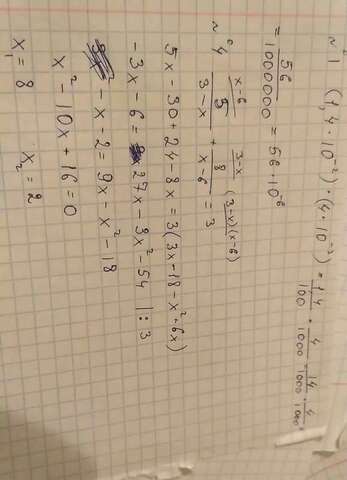 n°1 (1,4 · 10⁻²) · (4 · 10⁻²) = 1,4/100 · 4/1000 14/1000 · 4/1000
= 56/1000000 = 56 · 10⁻⁶
n°4 x-6 3-x (3-x)(x-6)
5/3-x + 8/x-6 = 3
5x - 30 + 24 - 8x = 3(3x - 18 - x² + 6x)
-3x - 6 = 27x - 3x² - 54 | : 3
-x - 2 = 9x - x² - 18
x² - 10x + 16 = 0
x₁ = 8 x₂ = 2